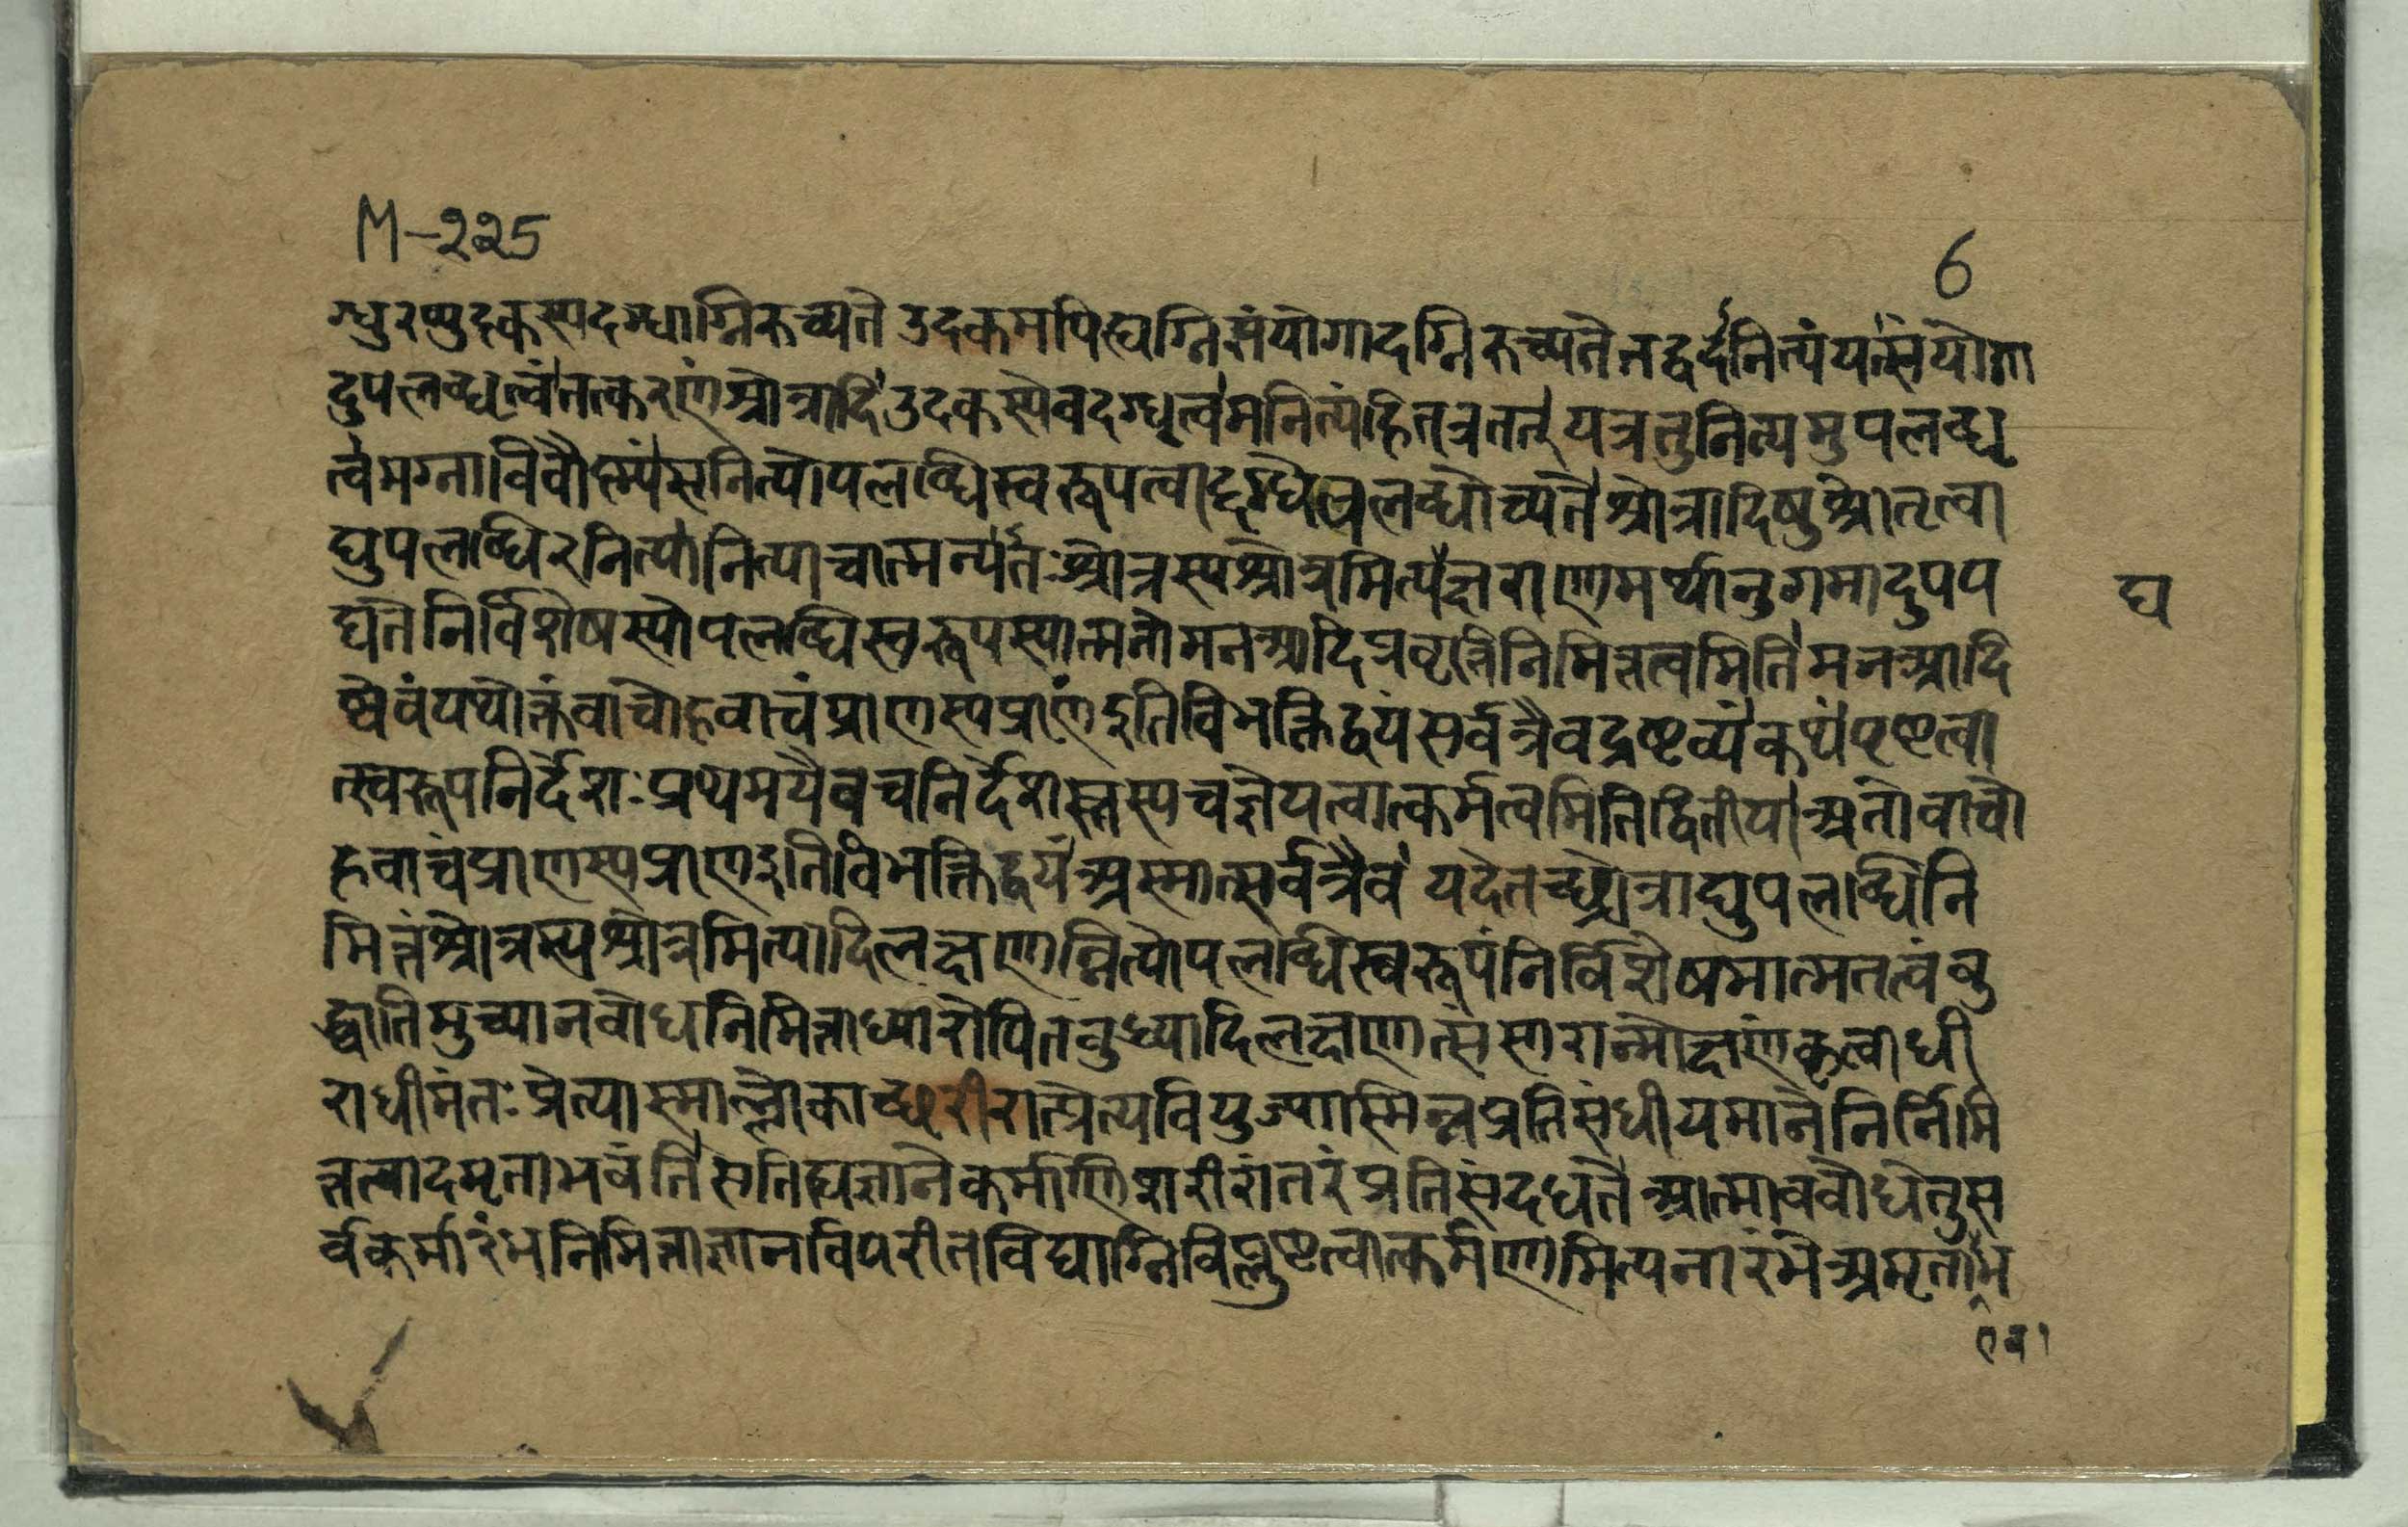 M-225
6
ग्धुरप्युदकस्यदग्धाग्निरुच्यते उदकमपिह्यग्निसंयोगादग्निरुच्यतेतद्वदनित्यंयत्संयोगा
दुपलब्धृत्वंतत्करणंश्रोत्रादि उदकस्येवदग्धृत्वमनित्यंहितत्रतत् यत्रतुनित्यमुपलब्धृ
त्वमग्नाविवौष्ण्यंसनित्योपलब्धिस्वरूपत्वाद्दग्धेवोपलब्धोच्यते श्रोत्रादिषुश्रोतृत्वा
द्युपलब्धिरनित्यानित्याचात्मन्यतःश्रोत्रस्यश्रोत्रमित्याद्यक्षराणामर्थानुगमादुपप
द्यतेनिर्विशेषस्योपलब्धिस्वरूपस्यात्मनोमनआदिप्रवृत्तिनिमित्तत्वमिति मनआदि
ष्वेवंयथोक्तंवाचोहवाचंप्राणस्यप्राणंइतिविभक्तिद्वयंसर्वत्रैवद्रष्टव्यंकथंपृष्टत्वा
त्स्वरूपनिर्देशःप्रथमयैवचनिर्देशस्तस्यचज्ञेयत्वात्कर्मत्वमितिद्वितीया अतोवाचो
हवाचंप्राणस्यप्राणइतिविभक्तिद्वयं अस्मात्सर्वत्रैव यदेतच्छ्रोत्राद्युपलब्धिनि
मित्तंश्रोत्रस्यश्रोत्रमित्यादिलक्षणन्नित्योपलब्धिस्वरूपंनिर्विशेषमात्मतत्वंबु
द्ध्वातिमुच्यानवबोधनिमित्ताध्यारोपितबुध्यादिलक्षणात्संसारान्मोक्षणंकृत्वाधी
राधीमंतःप्रेत्यास्माल्लोकाच्छरीरात्प्रेत्यवियुज्यास्मिन्नप्रतिसंधीयमानेनिर्निमि
त्तत्वादमृताभवंति सतिह्यज्ञानेकर्माणिशरीरांतरंप्रतिसंदधते आत्मावबोधेतुस
र्वकर्मारंभनिमित्ताज्ञानविपरीतविद्याग्निविप्लुष्टत्वात्कर्मणामित्यनारंभे अमृताभ
द्य